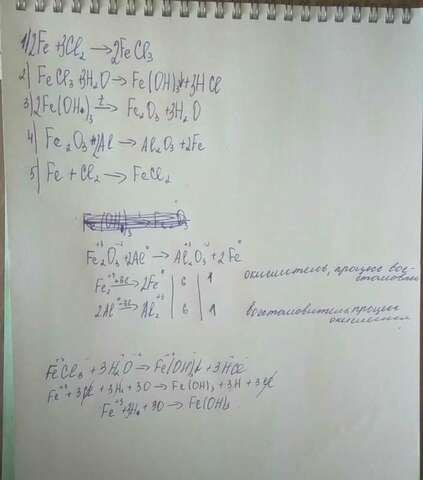 1) 2Fe + 3Cl₂ → 2FeCl₃
2) FeCl₃ + 3H₂O → Fe(OH)₃↓ + 3HCl
3) 2Fe(OH)₃ →ᵗ Fe₂O₃ + 3H₂O
4) Fe₂O₃ + 2Al → Al₂O₃ + 2Fe
5) Fe + Cl₂ → FeCl₂
Fe₂⁺³O₃⁻² + 2Al⁰ → Al₂⁺³O₃⁻² + 2Fe⁰
Fe₂⁺³ +3e → 2Fe⁰ | 6 | 1 окислитель, процесс вос-
становления
2Al⁰ -3e → Al₂⁺³ | 6 | 1 восстановитель, процесс
окисления
Fe⁺³Cl₃⁻ + 3H₂⁺O⁻² → Fe⁺³(OH)₃⁻↓ + 3H⁺Cl⁻
Fe⁺³ + 3Cl + 3H₂ + 3O → Fe(OH)₃ + 3H + 3Cl
Fe⁺³ + 3H₂ + 3O → Fe(OH)₃